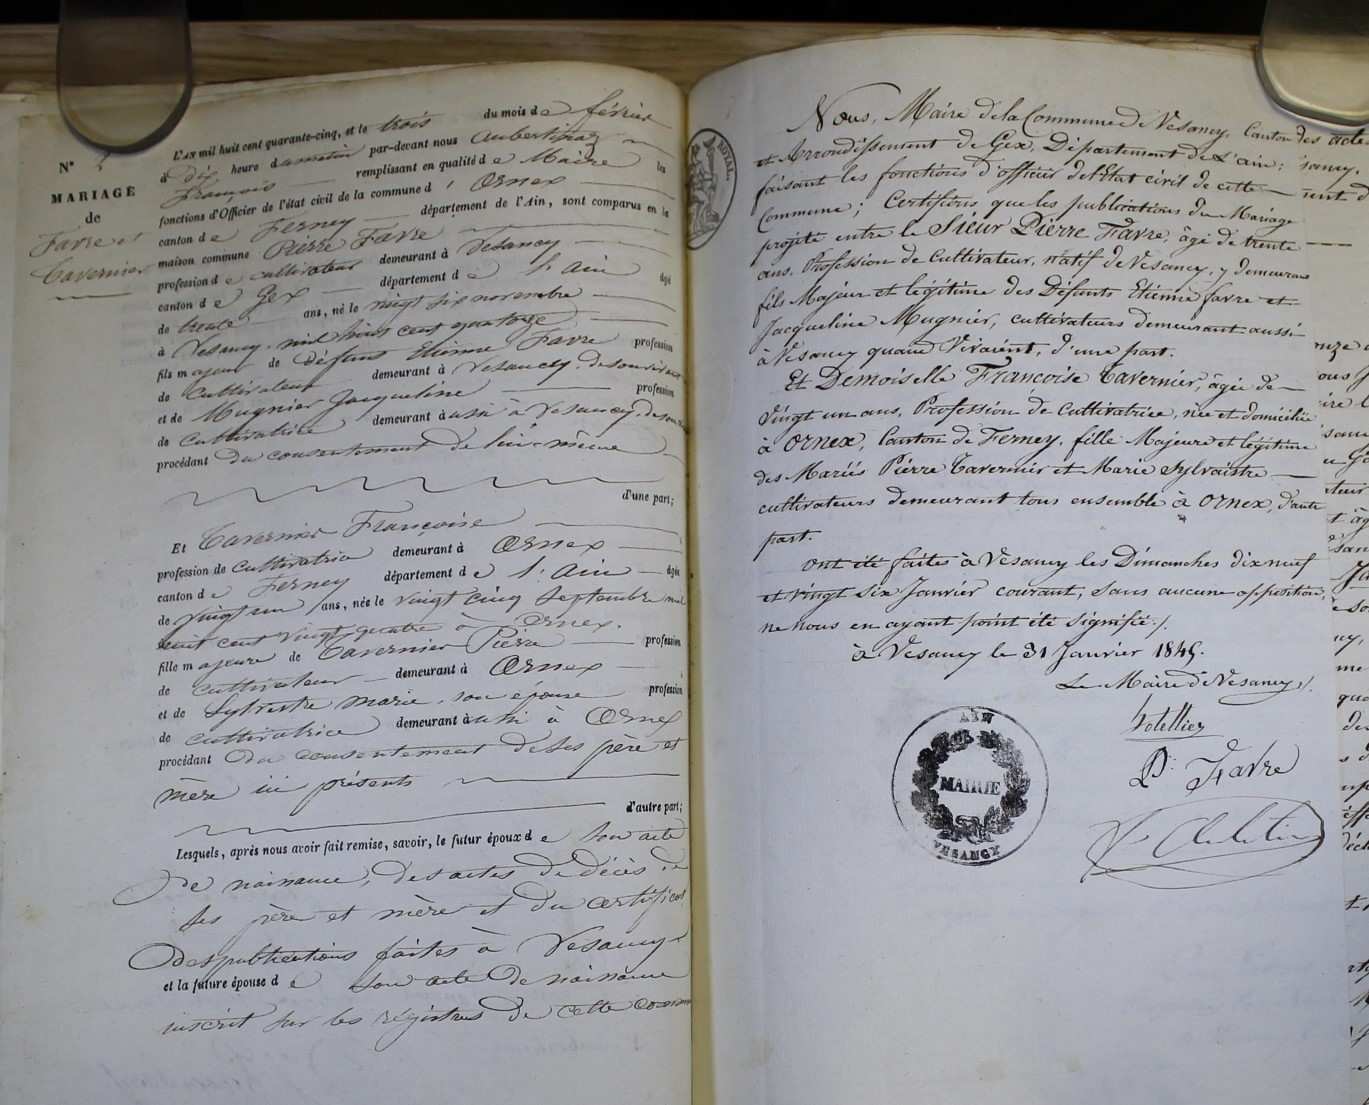 N° 3
MARIAGE
de
Favre et
Tavernier
L'AN mil huit cent quarante-cinq, et le trois du mois de février
à dix heure du matin par-devant nous Aubertinaz
François remplissant en qualité de Maire les
fonctions d'Officier de l'état civil de la commune d'Ornex
canton de Ferney département de l'Ain, sont comparus en la
maison commune Pierre Favre
profession de cultivateur demeurant à Vesancy
canton de Gex département de l'Ain âgé
de trente ans, né le vingt six novembre
à Vesancy, mil huit cent quatorze
fils majeur de défunt Etienne Favre profession
de Cultivateur demeurant à Vesancy, de son vivant
et de Mugnier Jacqueline profession
de cultivatrice demeurant aussi à Vesancy,
procédant du consentement de lui-même
d'une part;
Et Tavernier Françoise
profession de cultivatrice demeurant à Ornex
canton de Ferney département de l'Ain âgée
de vingt un ans, née le vingt cinq septembre mil
huit cent vingt quatre à Ornex.
fille majeure de Tavernier Pierre profession
de cultivateur demeurant à Ornex
et de Sylvestre Marie, son épouse profession
de cultivatrice demeurant aussi à Ornex
procédant du consentement de ses père et
mère ici présents
d'autre part;
Lesquels, après nous avoir fait remise, savoir, le futur époux de son acte
de naissance, des actes de décès de
ses père et mère et du certificat
des publications faites à Vesancy
et la future épouse de son acte de naissance
inscrit sur les régistres de cette comm
ROYAL.
Nous, Maire de la Commune de Vesancy, Canton
et Arrondissement de Gex, Département de L'ain;
faisant les fonctions d'officier de l'état civil de cette
Commune; Certifions que les publications du Mariage
projeté entre le Sieur Pierre Favre, âgé de trente
ans, Profession de Cultivateur, natif de Vesancy, y demeurant
fils Majeur et légitime des Défunts Etienne favre et
Jacqueline Mugnier, cultivateurs demeurant aussi
à Vesancy quand Vivaient, d'une part.
Et Demoiselle Françoise Tavernier, âgée de
Vingt un ans, Profession de Cultivatrice, née et domiciliée
à Ornex, Canton de Ferney, fille Majeure et légitime
des Mariés Pierre Tavernier et Marie Sylvaistre
cultivateurs demeurant tous ensemble à Ornex, d'autre
part.
ont été faites à Vesancy les Dimanches dix neuf
et vingt six Janvier courant, sans aucune opposition,
ne nous en ayant point été signifié./.
à Vesancy le 31 Janvier 1845.
Le Maire de Vesancy /.
P. Favre
AIN
MAIRIE
VESANCY